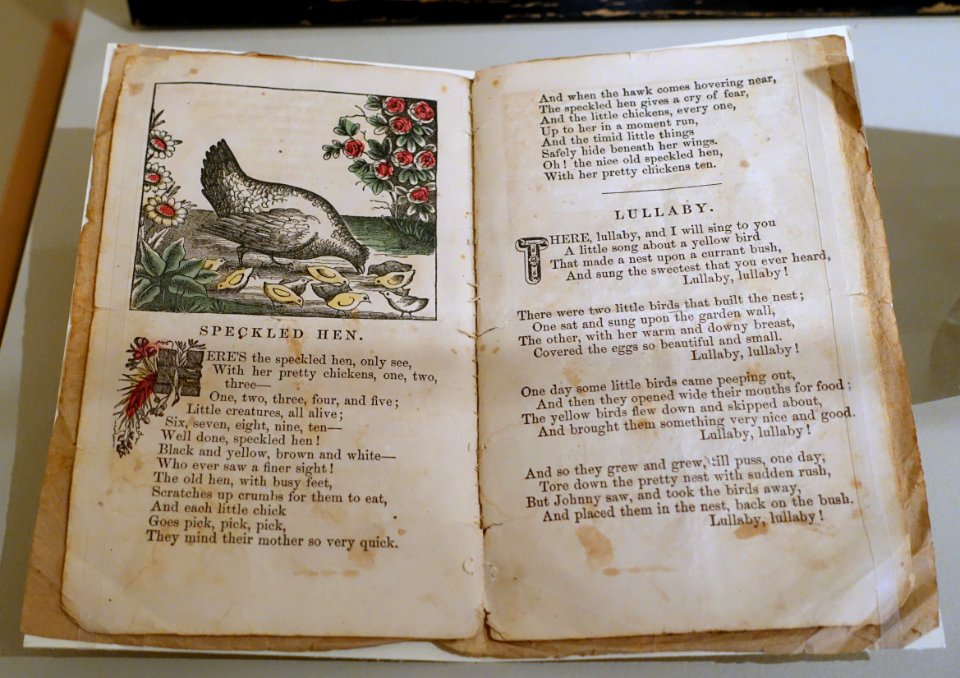 SPECKLED HEN.
HERE'S the speckled hen, only see,
With her pretty chickens, one, two,
three—
One, two, three, four, and five;
Little creatures, all alive;
Six, seven, eight, nine, ten—
Well done, speckled hen!
Black and yellow, brown and white—
Who ever saw a finer sight!
The old hen, with busy feet,
Scratches up crumbs for them to eat,
And each little chick
Goes pick, pick, pick,
They mind their mother so very quick.
And when the hawk comes hovering near,
The speckled hen gives a cry of fear,
And the little chickens, every one,
Up to her in a moment run,
And the timid little things
Safely hide beneath her wings.
Oh! the nice old speckled hen,
With her pretty chickens ten.
LULLABY.
THERE, lullaby, and I will sing to you
A little song about a yellow bird
That made a nest upon a currant bush,
And sung the sweetest that you ever heard,
Lullaby, lullaby!
There were two little birds that built the nest;
One sat and sung upon the garden wall,
The other, with her warm and downy breast,
Covered the eggs so beautiful and small.
Lullaby, lullaby!
One day some little birds came peeping out,
And then they opened wide their mouths for food;
The yellow birds flew down and skipped about,
And brought them something very nice and good.
Lullaby, lullaby!
And so they grew and grew, till puss, one day,
Tore down the pretty nest with sudden rush,
But Johnny saw, and took the birds away,
And placed them in the nest, back on the bush.
Lullaby, lullaby!